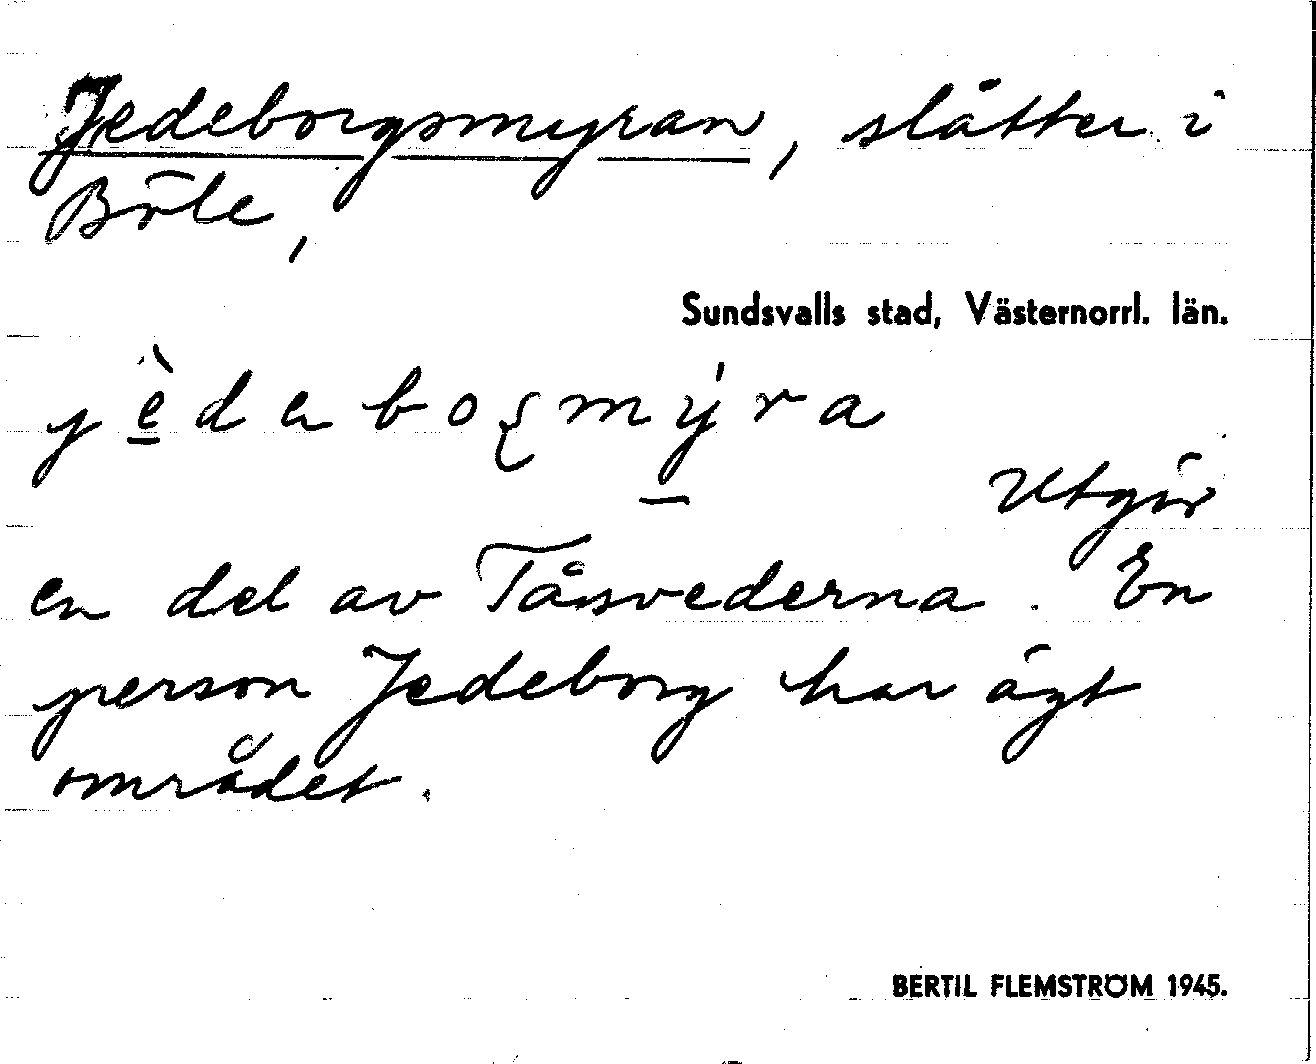 Jedeborgsmyran, slåtter i
Böle,
Sundsvalls stad, Västernorrl. län.
j è d e b o ʂ m ý r a
Utgör
en del av Tåsvederna. En
person Jedeborg har ägt
området.
BERTIL FLEMSTRÖM 1945.